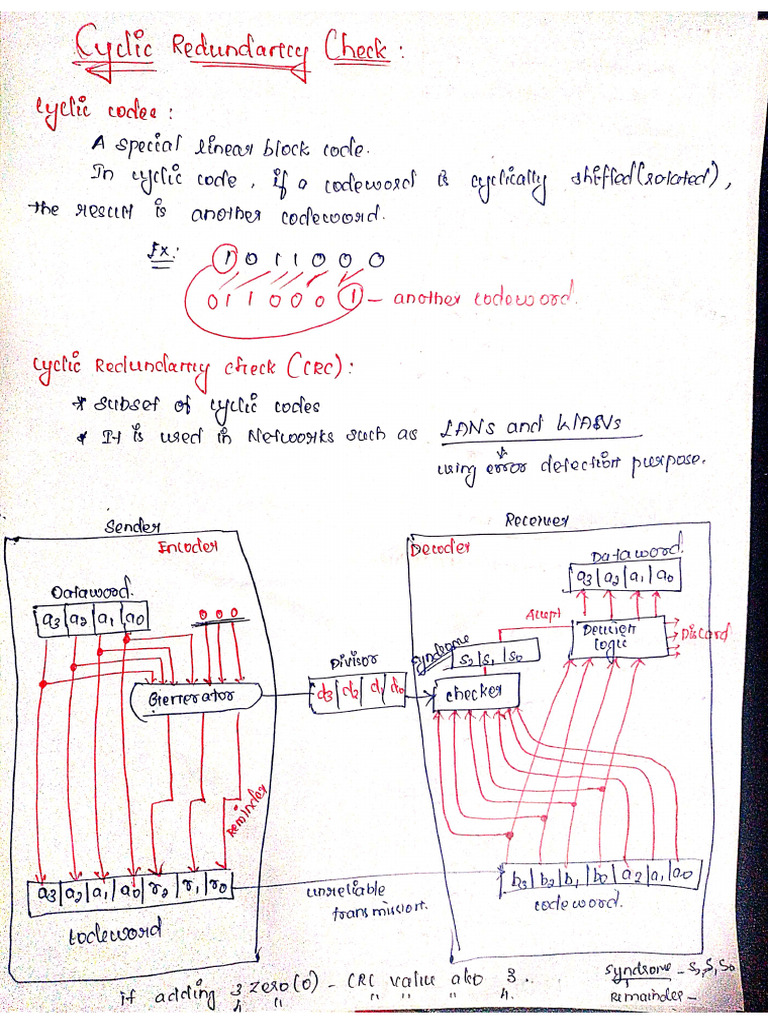 Cyclic Redundancy Check :
Cyclic codes :
A special linear block code.
In cyclic code , if a codeword is cyclically shifted (rotated) ,
the result is another codeword.
Ex :
1 0 1 1 0 0 0
0 1 1 0 0 0 1 - another codeword.
Cyclic Redundancy check (CRC) :
* subset of cyclic codes
* It is used in Networks such as LANs and WANs
using error detection purpose.
Sender
Encoder
Dataword
a3 | a2 | a1 | a0
0 0 0
Generator
Reminder
a3 | a2 | a1 | a0 | r2 | r1 | r0
Codeword
Divisor
d3 | d2 | d1 | d0
unreliable
transmission.
Receiver
Decoder
Dataword
a3 | a2 | a1 | a0
Accept
Decision
logic
Discard
Syndrome
s2 | s1 | s0
Checker
b3 | b2 | b1 | b0 | a2 | a1 | a0
codeword.
if adding 3 zero (0) - CRC value also 3 . .
4 " " " " " 4.
syndrome - S2 S1 S0
Remainder -